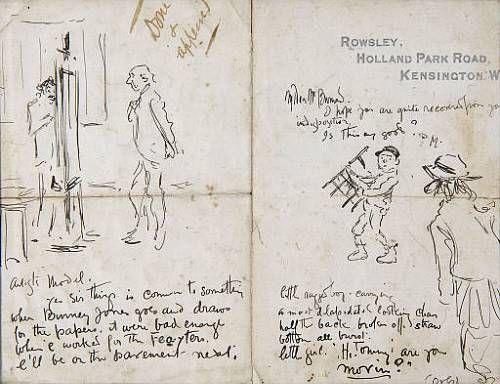 Done
&
ROWSLEY,
HOLLAND PARK ROAD,
KENSINGTON. W
My dear Mr
I hope you are quite recovered from
indisposition
Is this any good?
P.M.
Model.
Ye sir things is coming to something
when goes and draws
for the papers. it were bad enough
when 'e worked for the
e'll be on the pavement next.
little ragged boy - carrying
a most dilapidated looking chair
half the back broken off straw
bottom all burst.
little girl. Hi Tommy! are you
movin?
(over)